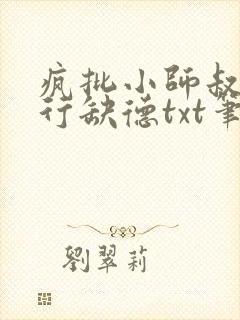 疯批小師叔
行缺德txt筆
劉翠莉